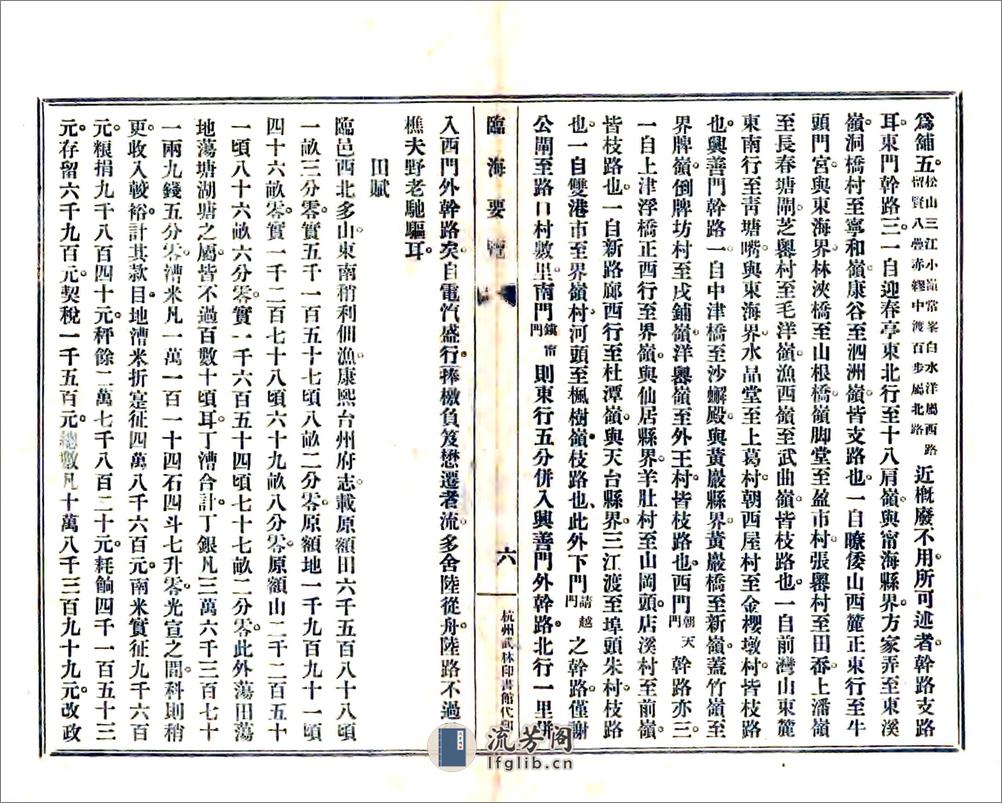 爲舖五松山三江小嶺常峯白水洋屬西路留賢八疊赤繆中渡百步屬北路近概廢不用所可述者幹路支路
耳東門幹路三一自迎春亭東北行至十八肩嶺與甯海縣界方家弄至東溪
嶺洞橋村至寧和嶺康谷至泗洲嶺皆支路也一自瞭倭山西麓正東行至牛
頭門宮與東海界林浹橋至山根橋嶺脚堂至盈市村張嶴村至田岙上潘嶺
至長春塘閘芝嶴村至毛洋嶺漁西嶺至武曲嶺皆枝路也一自前灣山東麓
東南行至靑塘嘴與東海界水品堂至上葛村朝西屋村至金櫻墩村皆枝路
也興善門幹路一自中津橋至沙蠏殿與黃巖縣界黃巖橋至新嶺蓋竹嶺至
界牌嶺倒牌坊村至戌鋪嶺洋嶴嶺至外王村皆枝路也西門朝天門幹路亦三
一自上津浮橋正西行至界嶺與仙居縣界羊肚村至山岡頭店溪村至前嶺
皆枝路也一自新路廊西行至杜潭嶺與天台縣界三江渡至埠頭朱村枝路
也一自雙港市至界嶺村河頭至楓樹嶺枝路也此外下門靖越門之幹路僅謝
公閘至路口村數里南門鎮甯門則東行五分併入興善門外幹路北行一里併
臨海要覽
六
杭州武林印書館代印
入西門外幹路矣自電汽盛行捧檄負笈懋遷者流多舍陸從舟陸路不過
樵夫野老馳驅耳
田賦
臨邑西北多山東南稍利佃漁康熙台州府志載原額田六千五百八十八頃
一畝三分零實五千一百五十七頃八畝二分零原額地一千九百九十一頃
四十六畝零實一千二百七十八頃六十九畝八分零原額山二千二百五十
一頃八十六畝六分零實一千六百五十四頃七十七畝二分零此外蕩田蕩
地蕩塘湖塘之屬皆不過百數十頃耳丁漕合計丁銀凡三萬六千三百七十
一兩九錢五分零漕米凡一萬一百一十四石四斗七升零光宣之間科則稍
更收入較裕計其款目地漕米折寔征四萬八千六百元南米實征九千六百
元粮捐九千八百四十元秤餘二萬七千八百二十元耗餉四千一百五十三
元存留六千九百元契稅一千五百元總數凡十萬八千三百九十九元改政
流芳阁
lfglib.cn